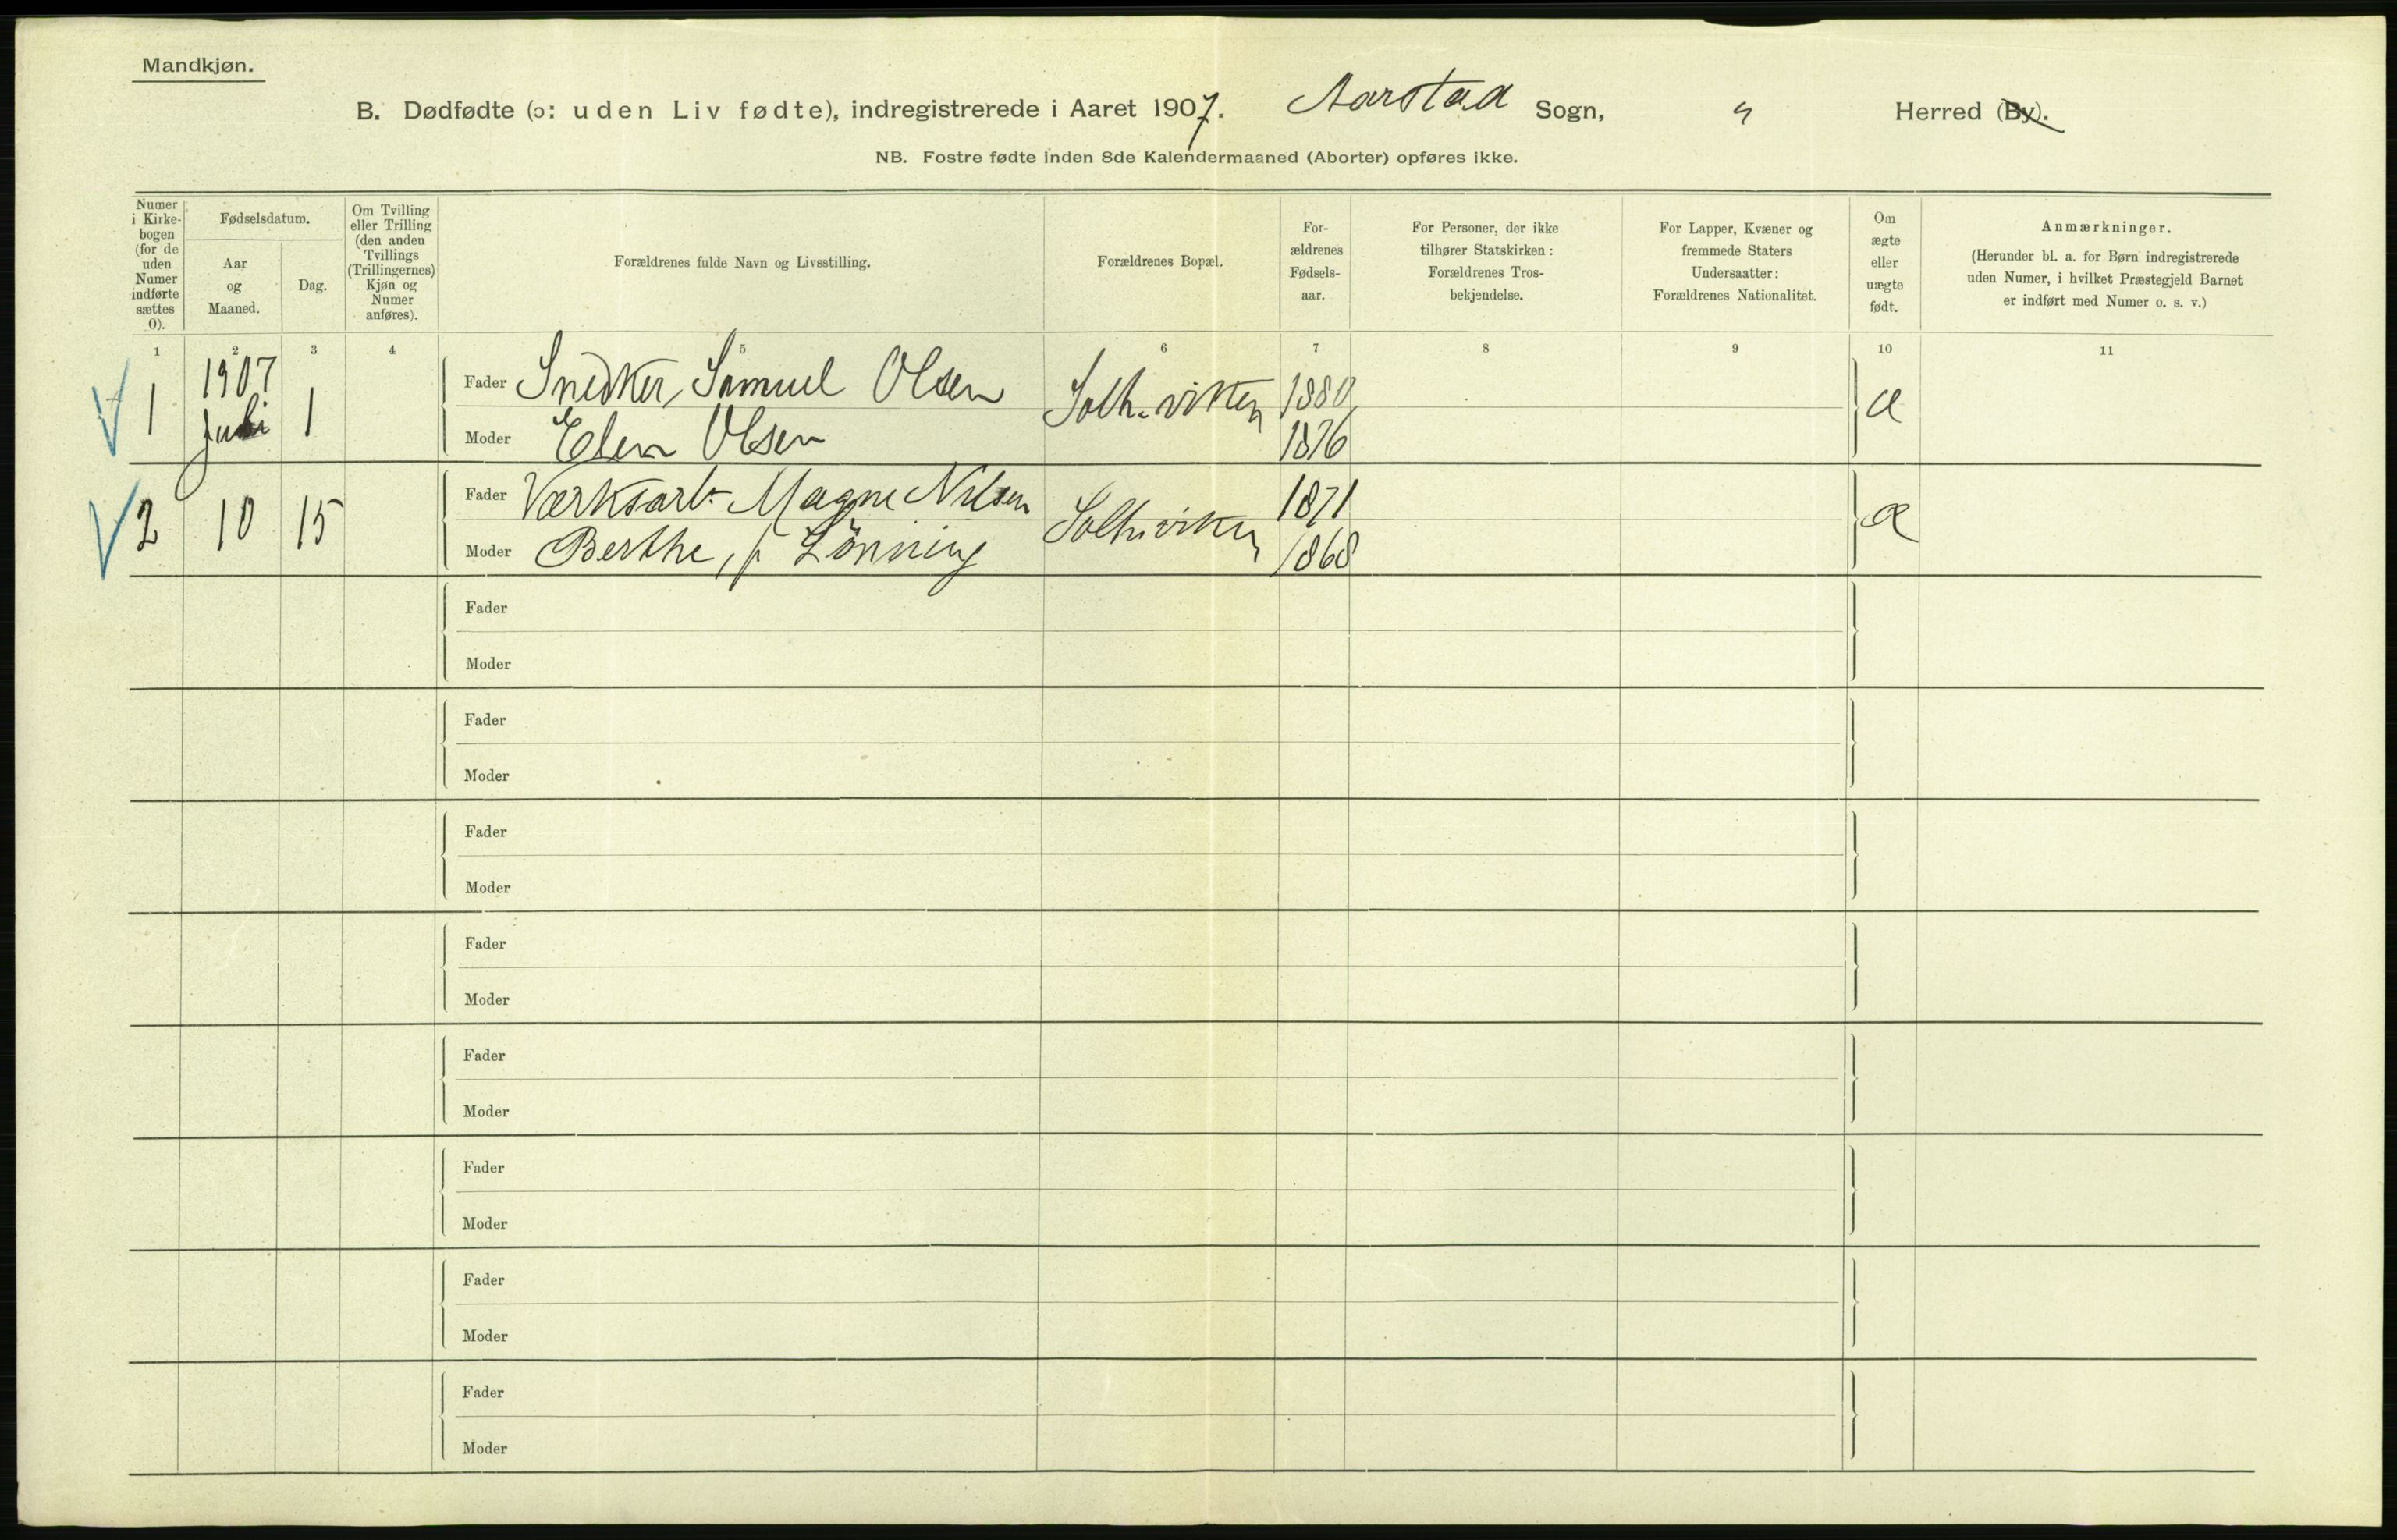 Mandkjøn.
B. Dødfødte (ɔ: uden Liv fødte), indregistrerede i Aaret 1907. Aarstad Sogn, " Herred (By).
NB. Fostre fødte inden 8de Kalendermaaned (Aborter) opføres ikke.
Numer i Kirkebogen (for de uden Numer indførte sættes 0).
Fødselsdatum.
Aar og Maaned.
Dag.
Om Tvilling eller Trilling (den anden Tvillings (Trillingernes) Kjøn og Numer anføres).
Forældrenes fulde Navn og Livsstilling.
Forældrenes Bopæl.
For-ældrenes Fødsels-aar.
For Personer, der ikke tilhører Statskirken: Forældrenes Tros-bekjendelse.
For Lapper, Kvæner og fremmede Staters Undersaatter: Forældrenes Nationalitet.
Om ægte eller uægte født.
Anmærkninger.
(Herunder bl. a. for Børn indregistrerede uden Numer, i hvilket Præstegjeld Barnet er indført med Numer o. s. v.)
1 2 3 4 5 6 7 8 9 10 11
1 1907 Juli 1 Fader Snedker, Samuel Olsen Solh.vikken 1880 æ
Moder Elen Olsen 1876
2 10 15 Fader Værksarb. Magne Nilsen Solh.viken 1871 æ
Moder Berthe, f. Lönning 1868
Fader
Moder
Fader
Moder
Fader
Moder
Fader
Moder
Fader
Moder
Fader
Moder
Fader
Moder
Fader
Moder